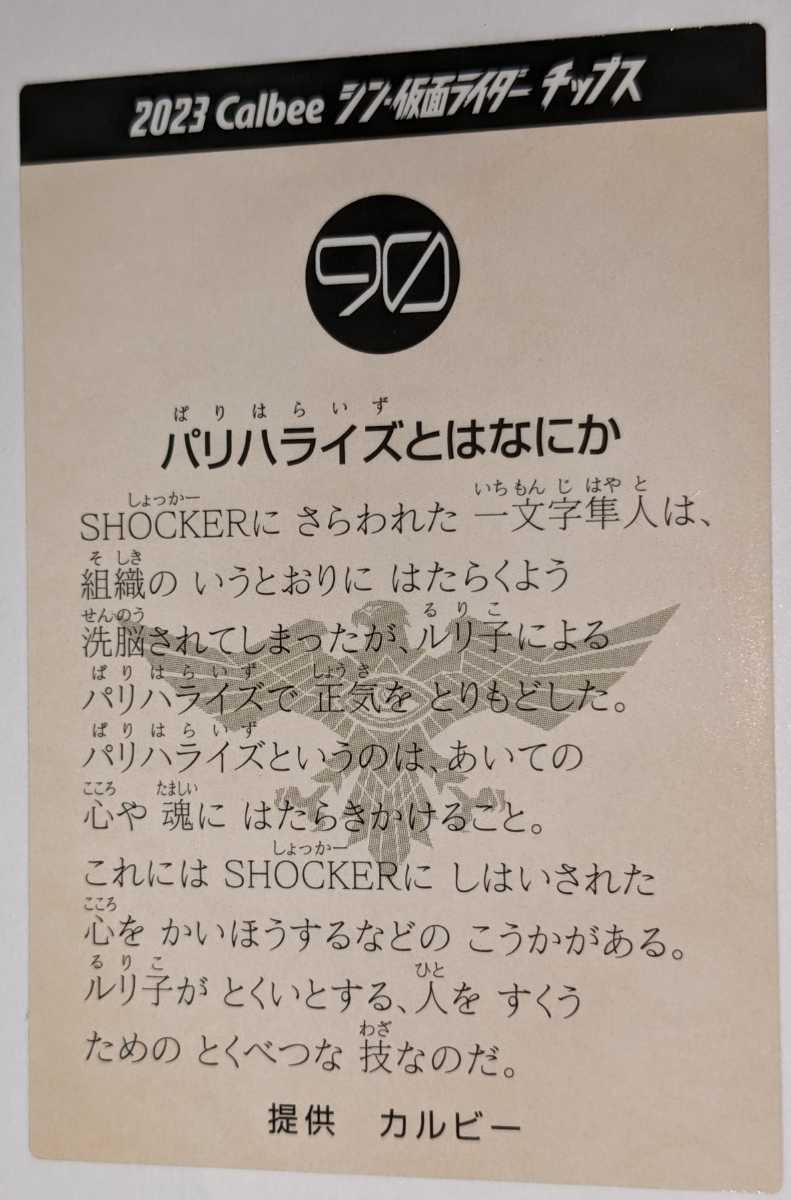 2023 Calbee シン・仮面ライダー チップス
90
ぱりはらいず
パリハライズとはなにか
しょっかー いちもんじ はやと
SHOCKERに さらわれた 一文字隼人は、
そしき
組織の いうとおりに はたらくよう
せんのう るりこ
洗脳されてしまったが、ルリ子による
ぱりはらいず しょうき
パリハライズで 正気を とりもどした。
ぱりはらいず
パリハライズというのは、あいての
こころ たましい
心や 魂に はたらきかけること。
しょっかー
これには SHOCKERに しはいされた
こころ
心を かいほうするなどの こうかがある。
るりこ ひと
ルリ子が とくいとする、人を すくう
わざ
ための とくべつな 技なのだ。
提供 カルビー